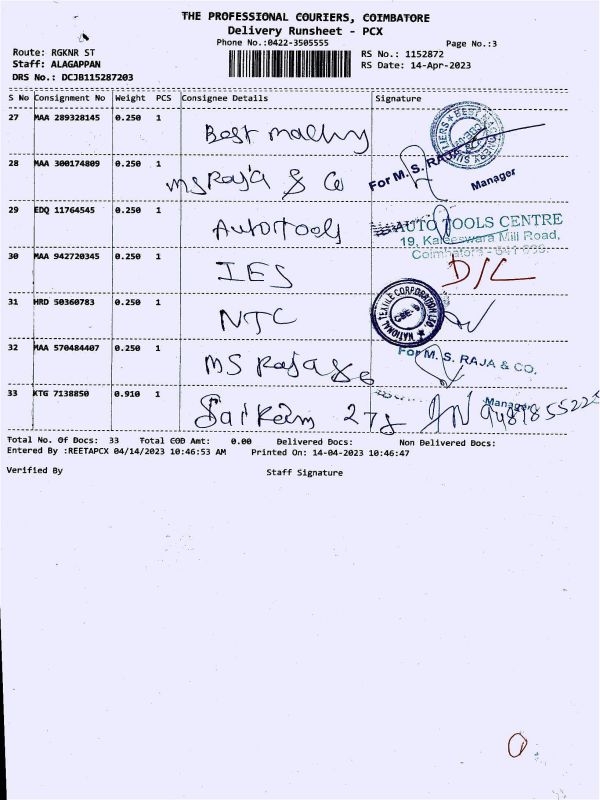 THE PROFESSIONAL COURIERS, COIMBATORE
Delivery Runsheet - PCX
Phone No.:0422-3505555
Page No.:3
Route: RGKNR ST
RS No.: 1152872
Staff: ALAGAPPAN
RS Date: 14-Apr-2023
DRS No.: DCJB115287203
S No Consignment No Weight PCS Consignee Details Signature
27 MAA 289328145 0.250 1 Best
28 MAA 300174809 0.250 1 MS Raja & Co For M. S. RAJA Manager
29 EDQ 11764545 0.250 1 Auto Tools AUTO TOOLS CENTRE
19, Kaleeswara Mill Road,
Coimbatore - 641
30 MAA 942720345 0.250 1 IES D/L
31 HRD 50360783 0.250 1 NTC NATIONAL TEXTILE CORPORATION LTD
32 MAA 570484407 0.250 1 MS Raja & Co For M. S. RAJA & CO.
Manager
33 KTG 7138850 0.910 1
Total No. Of Docs: 33 Total COD Amt: 0.00 Delivered Docs: Non Delivered Docs:
Entered By :REETAPCX 04/14/2023 10:46:53 AM Printed On: 14-04-2023 10:46:47
Verified By Staff Signature